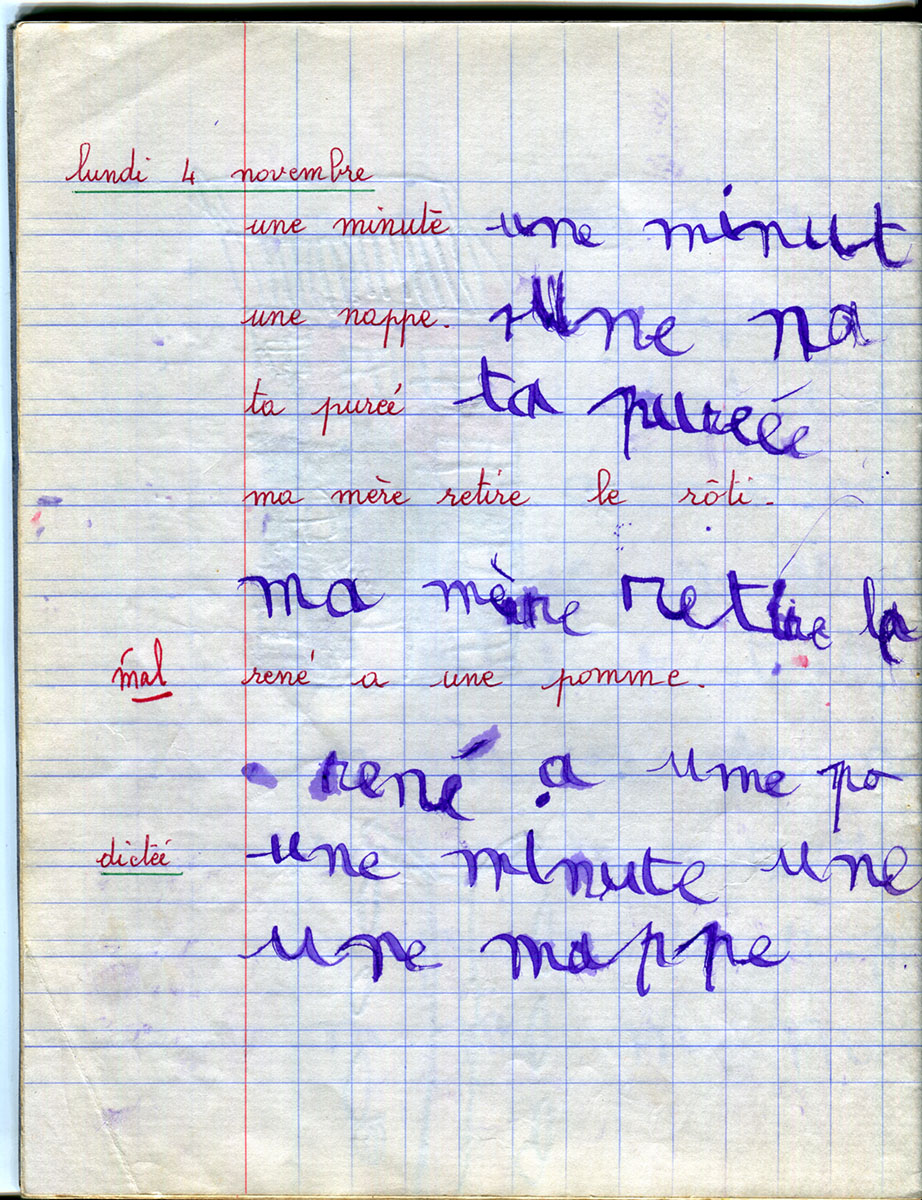 lundi 4 novembre
une minute une minut
une nappe. une na
ta purée ta purée
ma mère retire le rôti.
ma mère retire
mal rené a une pomme.
rené a ume po
dictée une minute une
une mappe